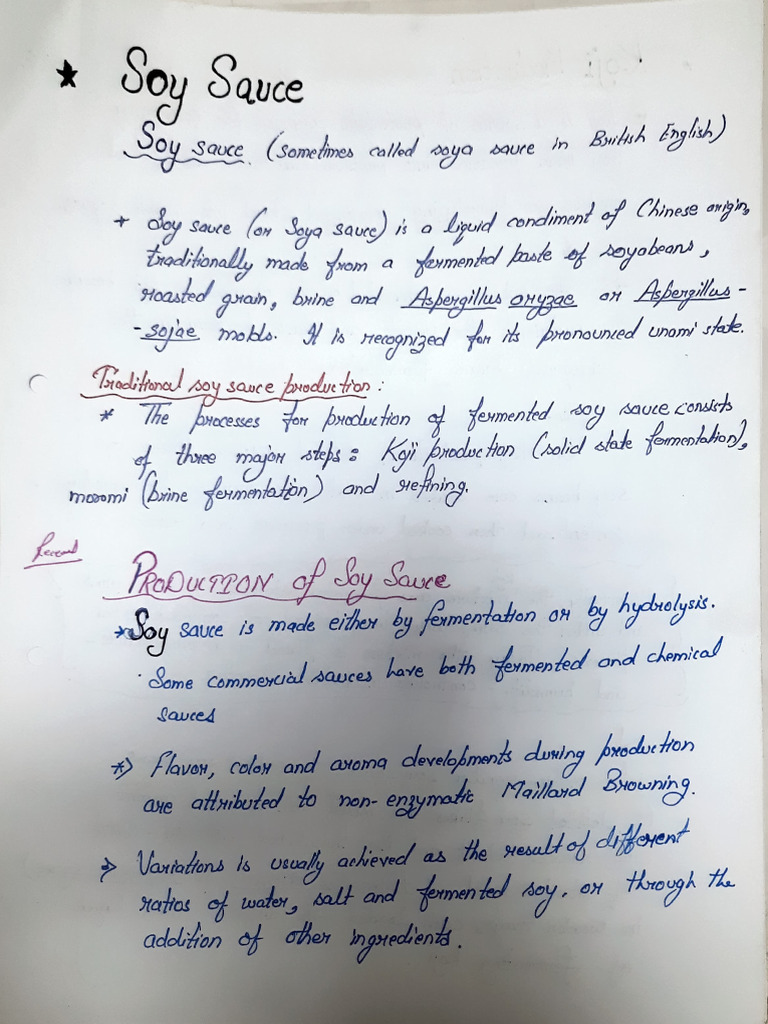 ★ Soy Sauce
Soy sauce (sometimes called soya sauce in British English)
+ Soy sauce (or Soya sauce) is a liquid condiment of Chinese origin,
traditionally made from a fermented paste of soyabeans,
roasted grain, brine and Aspergillus oryzae or Aspergillus -
- sojae molds. It is recognized for its pronounced unami state.
Traditional soy sauce production :
* The processes for production of fermented soy sauce consists
of three major steps : Koji production (solid state fermentation),
moromi (brine fermentation) and refining.
PRODUCTION of Soy Sauce
* Soy sauce is made either by fermentation or by hydrolysis.
· Some commercial sauces have both fermented and chemical
sauces
*) Flavor, color and aroma developments during production
are attributed to non-enzymatic Maillard Browning.
⇒ Variations is usually achieved as the result of different
ratios of water, salt and fermented soy, or through the
addition of other ingredients.